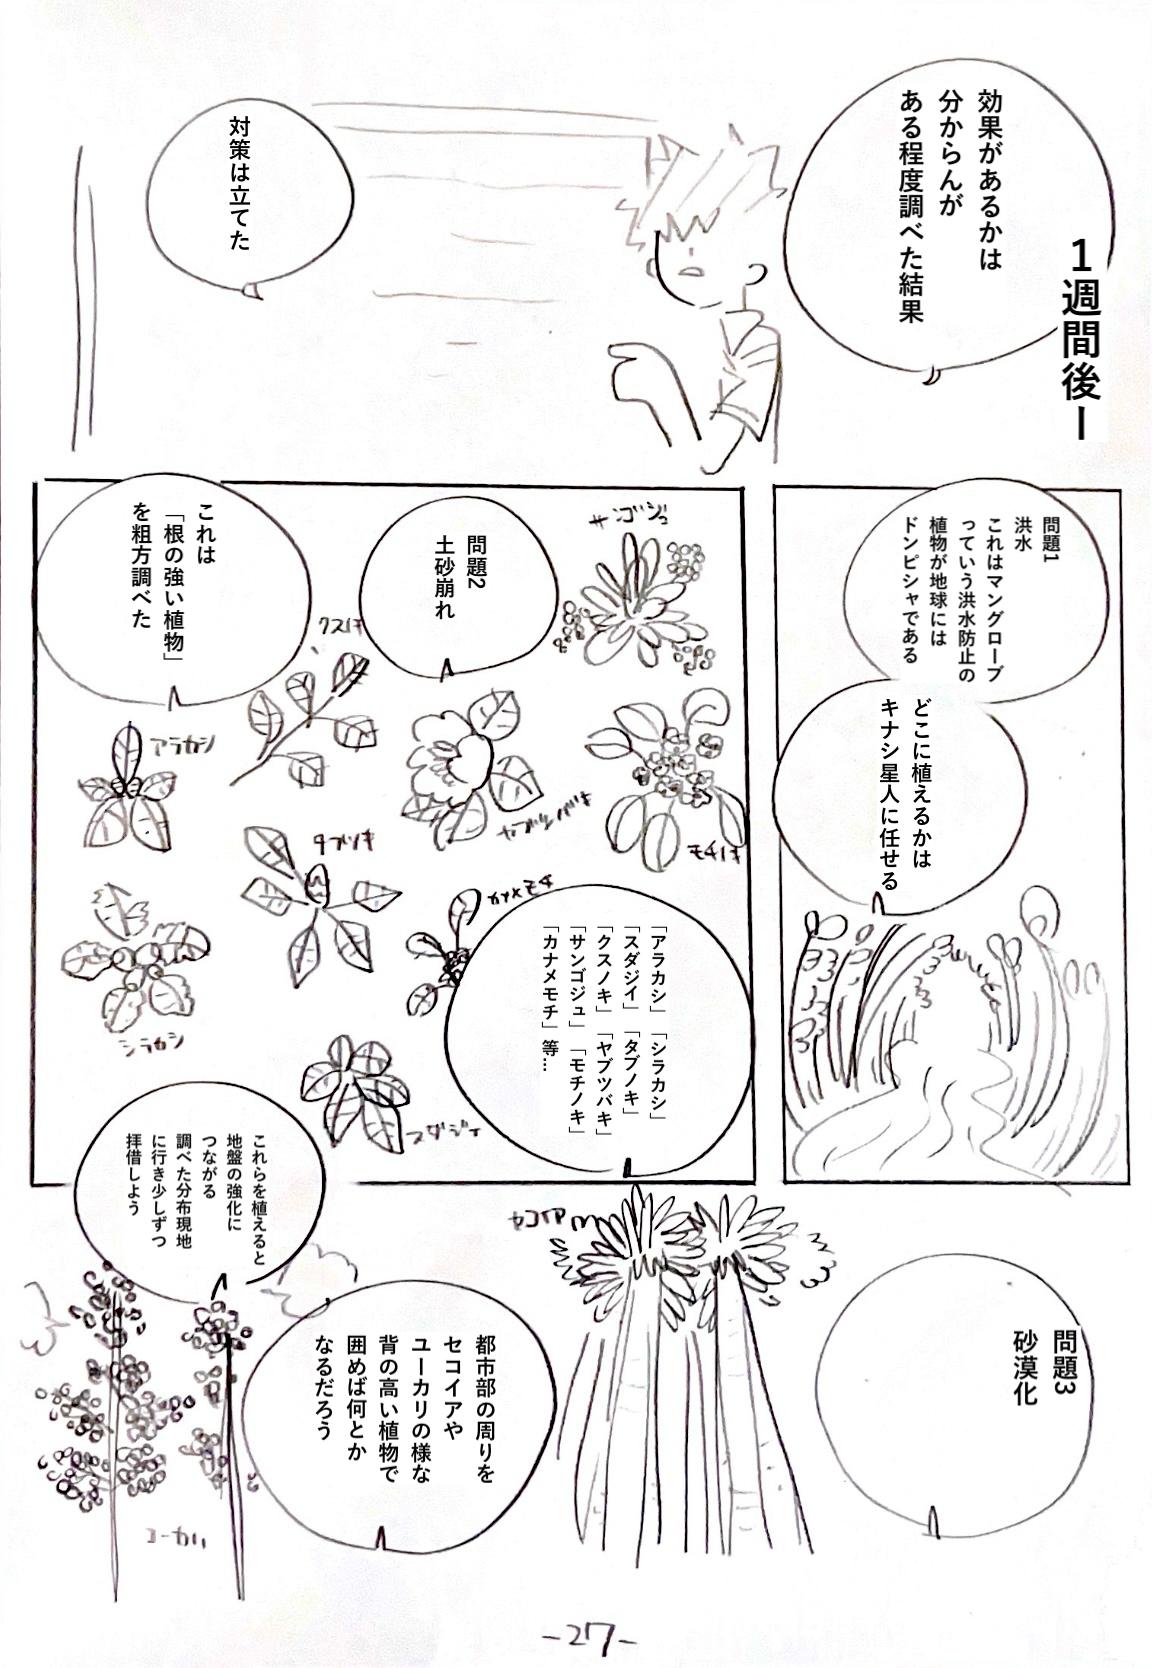 1週間後ー
効果があるかは
分からんが
ある程度調べた結果
対策は立てた
問題1
洪水
これはマングローブ
っていう洪水防止の
植物が地球には
ドンピシャである
どこに植えるかは
キナシ星人に任せる
サンゴジュ
問題2
土砂崩れ
これは
「根の強い植物」
を粗方調べた
クスノキ
アラカシ
ヤブツバキ
モチノキ
タブノキ
カナメモチ
シラカシ
スダジイ
「アラカシ」「シラカシ」
「スダジイ」「タブノキ」
「クスノキ」「ヤブツバキ」
「サンゴジュ」「モチノキ」
「カナメモチ」等…
これらを植えると
地盤の強化に
つながる
調べた分布現地
に行き少しずつ
拝借しよう
問題3
砂漠化
セコイア
都市部の周りを
セコイアや
ユーカリの様な
背の高い植物で
囲めば何とか
なるだろう
ユーカリ
-27-